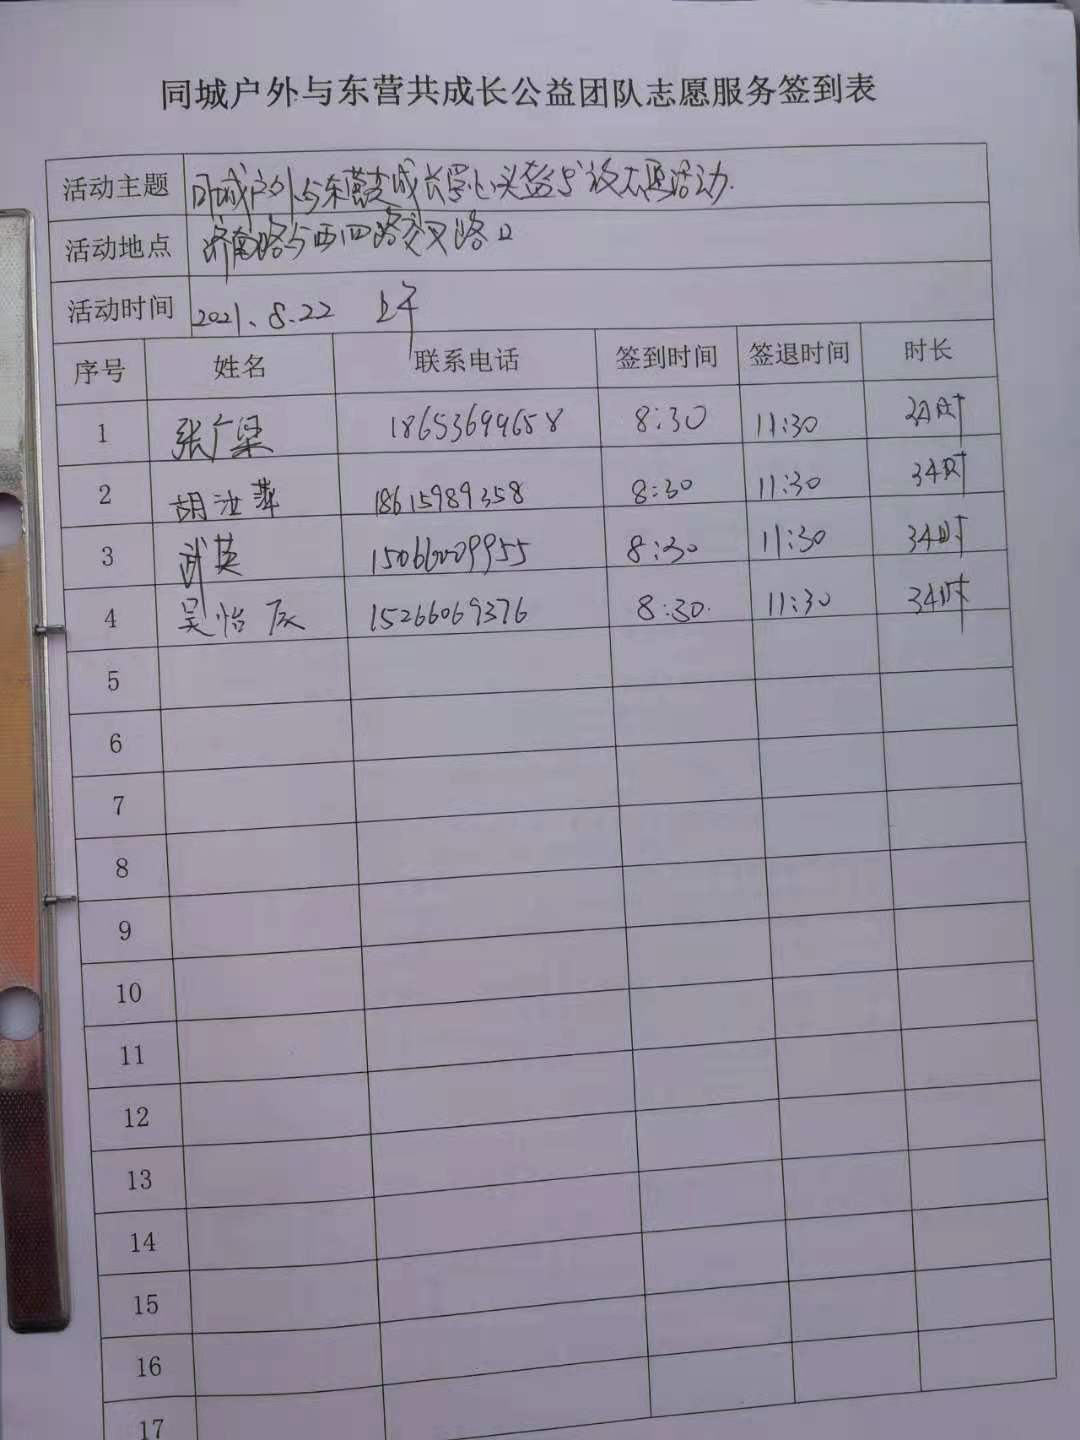 同城户外与东营共成长公益团队志愿服务签到表
活动主题 同城户外与东营共成长 头盔 活动.
活动地点 济南路与西四路交叉路口
活动时间 2021.8.22 上午
序号 姓名 联系电话 签到时间 签退时间 时长
1 张广梁 18653699658 8:30 11:30 小时
2 胡 萍 18615989358 8:30 11:30 3小时
3 武英 15066009955 8:30 11:30 3小时
4 吴怡辰 15266069376 8:30. 11:30 3小时
5
6
7
8
9
10
11
12
13
14
15
16
17